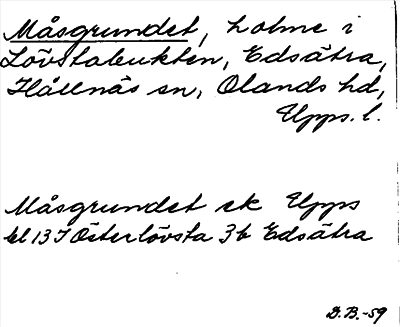 Måsgrundet, holme i
Lövstabukten, Edsätra,
Hållnäs sn, Olands hd,
Upps. l.
Måsgrundet ek Upps
bl 13 J Österlövsta 3b Edsätra
D.B.-59